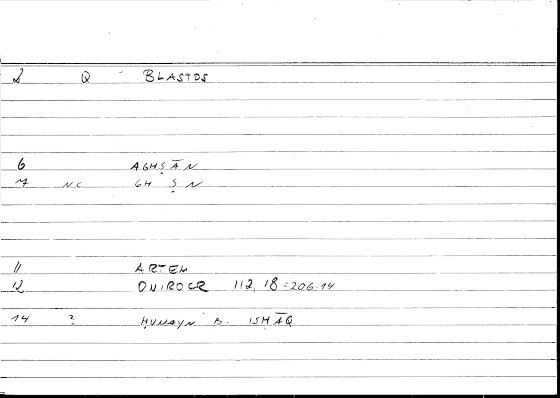 2 Q BLASTOS
6 AGHṢĀN
7 NC GH Ṣ N
11 ARTEM
12 ONIROCR 112,18=206.14
14 2 ḤUNAYN B. ISḤĀQ